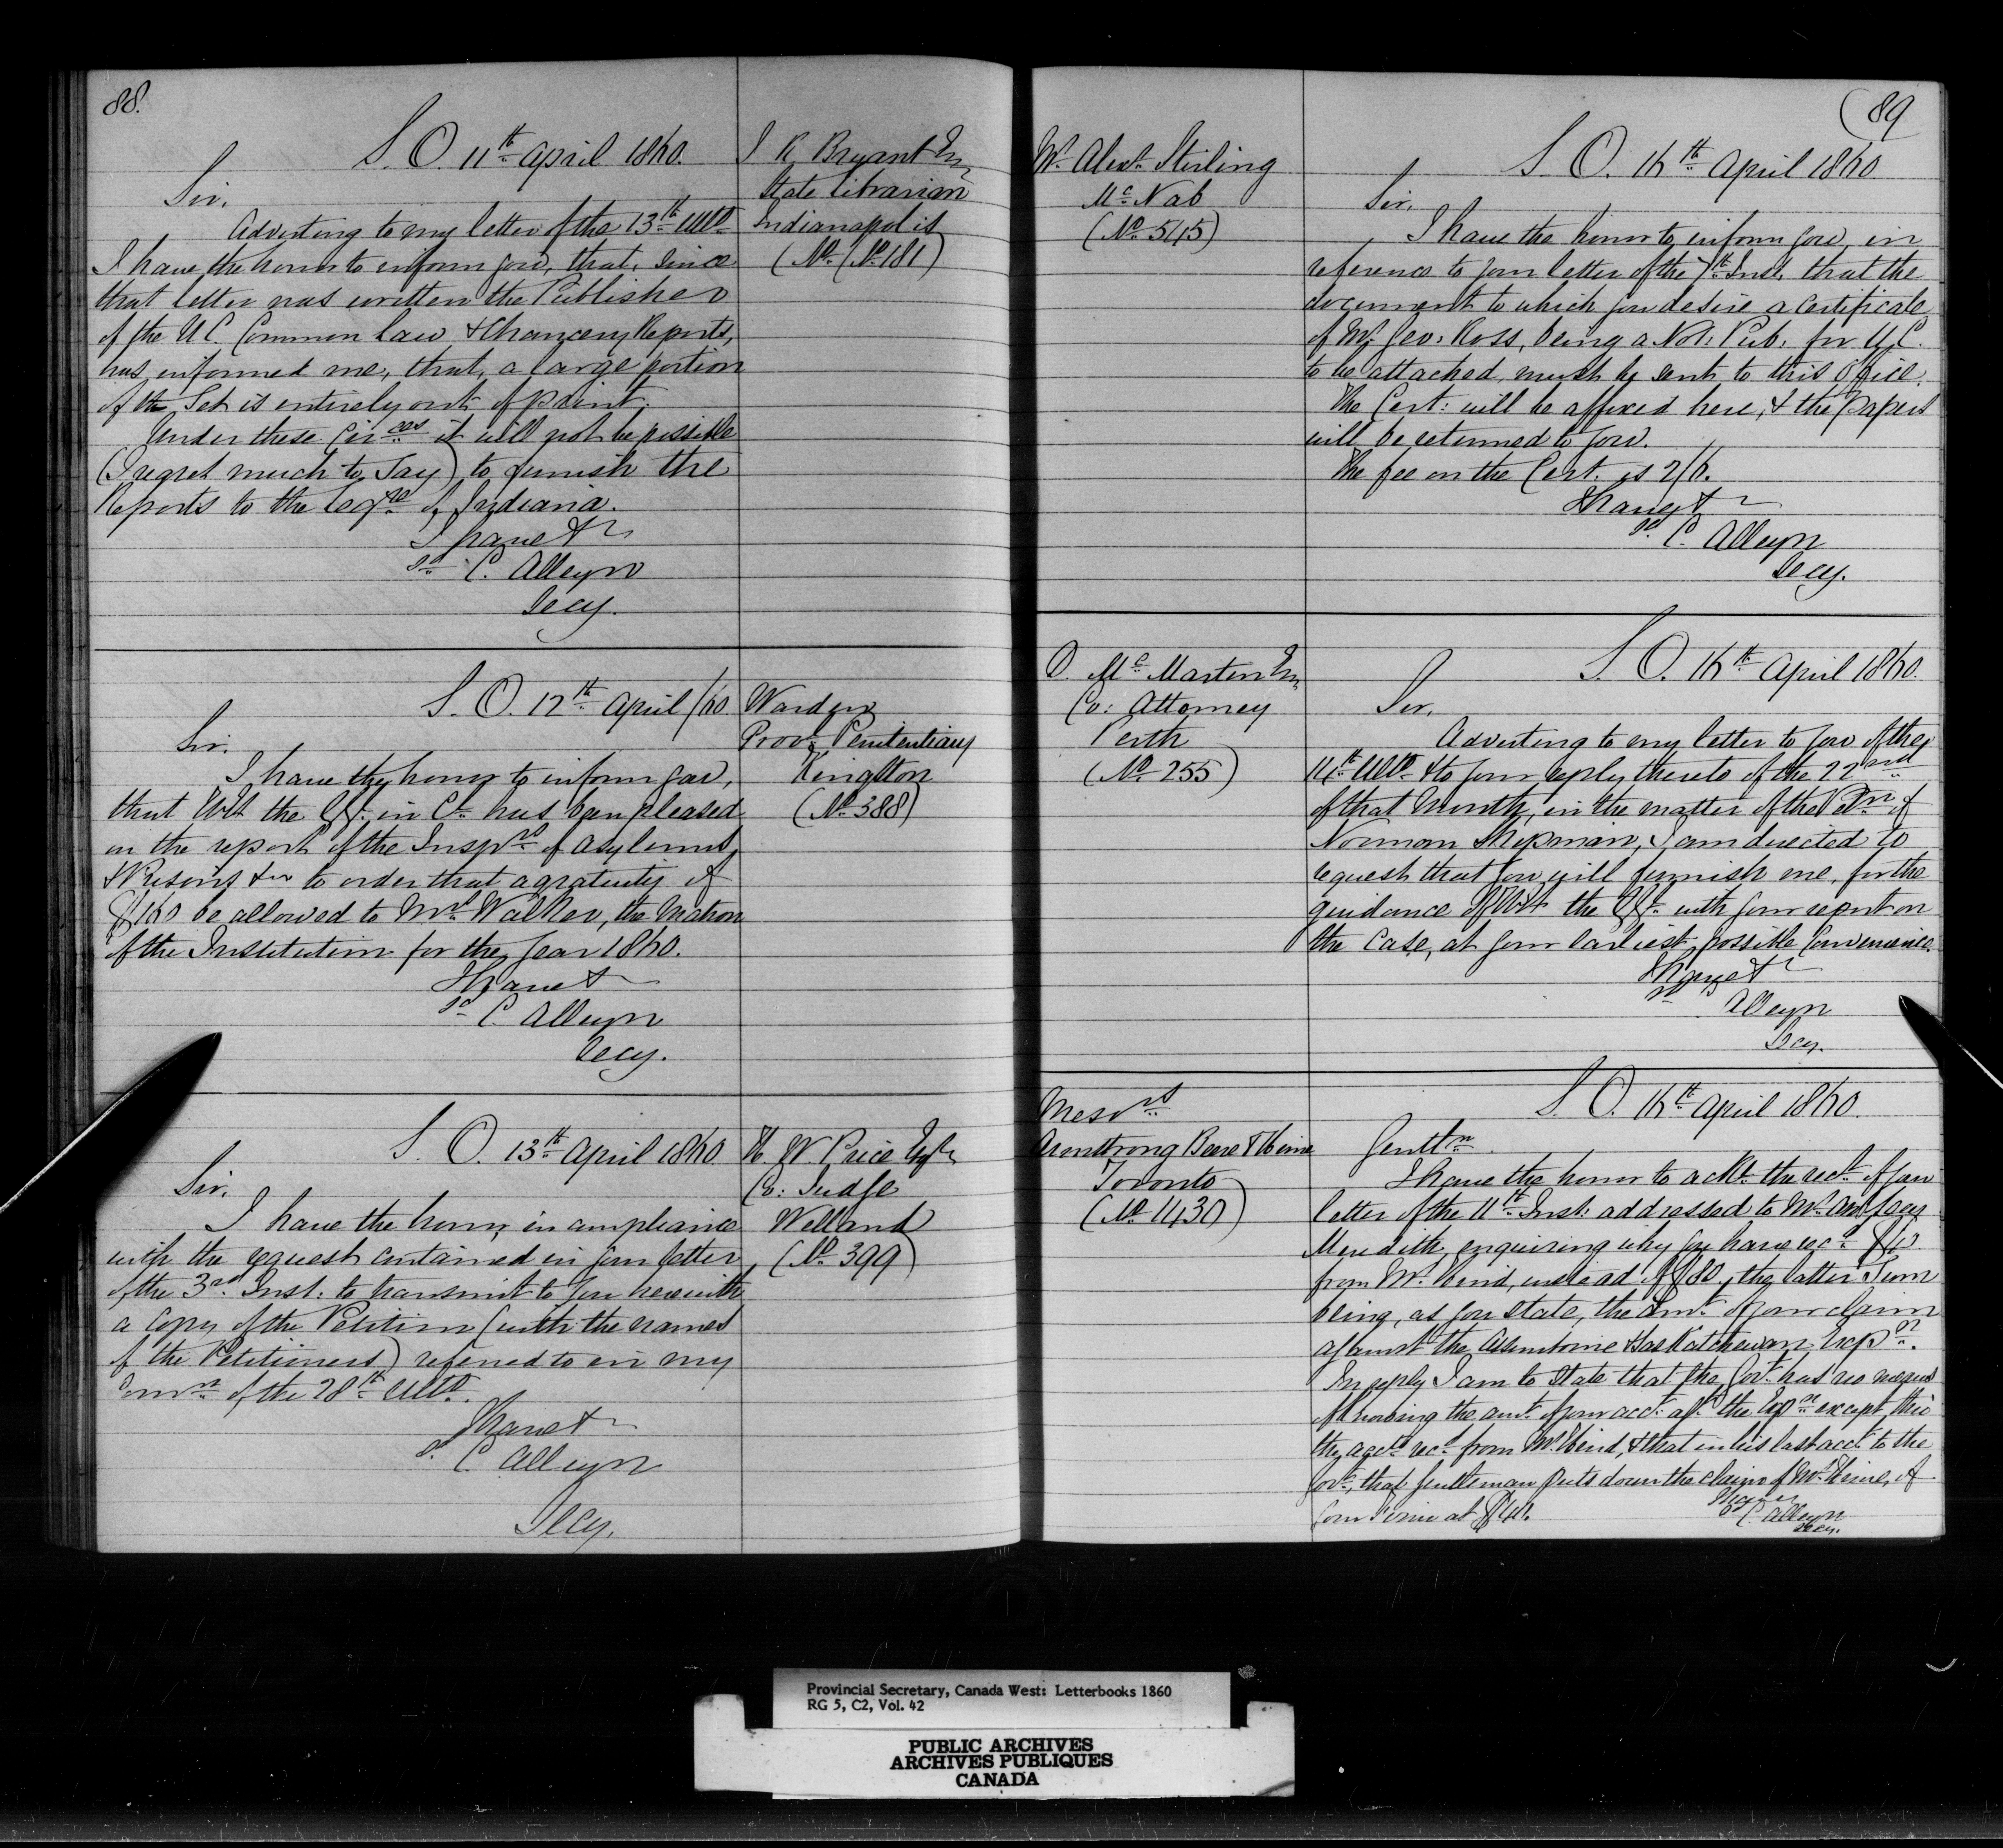 88.
S. O. 11th April 1860.
Sir,
Adverting to my letter of the 13th Ulto
I have the honor to inform you, that, since
that letter was written the Publisher
of the U.C. Common Law & Chancery Reports,
has informed me, that, a large portion
of the Set is entirely out of print.
Under these Circes it will not be possible
(I regret much to Say) to furnish the
Reports to the Legre of Indiana.
I have &
sd C. Alleyn
Secy.
J R Bryant Esq
State Librarian
Indianapolis
(No. (No 181)
S. O. 12th April /60
Sir.
I have the honor to inform you,
that the in Cl. has been pleased
on the report of the Insprs of Asylums,
& Prisons &c to order that a gratuity of
$160 be allowed to Mrs Walker, the Matron
of the Institution for the year 1860.
I have &
sd C. Alleyn
Secy.
Warden
Provl Penitentiary
Kingston
(No 388)
S. O. 13th April 1860
Sir.
I have the honor, in compliance
with the request contained in your letter
of the 3rd Inst. to transmit to you herewith
a Copy of the Petition (with the names
of the Petitioners) referred to in my
Comn of the 28th Ulto.
I have &
sd C. Alleyn
Secy.
H. W. Price Esq
Co: Judge
Welland
(No 399)
89
Mr Alexr Stirling
McNab
(No 545)
S. O. 16th April 1860
Sir,
I have the honor to inform you, in
reference to your letter of the 7th Inst. that the
document to which you desire a certificate
of Mr Geo: Ross, being a Not: Pub: for U.C.
to be attached, must be sent to this Office.
The Cert: will be affixed here, & the papers
will be returned to you.
The fee on the Cert. is 2/6.
I have &
sd C. Alleyn
Secy.
D. McMartin Esq
Co: Attorney
Perth
(No 255)
S. O. 16th April 1860.
Sir,
Adverting to my letter to you of the
Ulto & to your reply thereto of the 22nd
of that Month, in the matter of the Petn of
Norman Shipman, I am directed to
request that you will furnish me, for the
guidance of the with your report on
the Case, at your earliest possible Convenience.
I have &
sd C. Alleyn
Secy.
Messrs
Armstrong Beere & Heime
Toronto
(No 1430)
S. O. 16th April 1860.
Gentln
I have the honor to ackl. the rect. of your
letter of the 11th Inst: addressed to Mr Asst Secy
Meredith, enquiring why you have recd $40
from Mr Hind, instead of $80, the latter Sum
being, as you state, the Amt. of your claim
against the Assiniboine & Saskatchewan Expn.
In reply I am to State that the Govt. has no means
of knowing the amt. of your acct. agt the Expn except thro
the accts recd from Mr Hind, & that in his last acct. to the
Govt, that gentleman puts down the claim of Mr Heime, of
your Firm at $40.
I have
sd C. Alleyn
Secy.
Provincial Secretary, Canada West: Letterbooks 1860
RG 5, C2, Vol. 42
PUBLIC ARCHIVES
ARCHIVES PUBLIQUES
CANADA